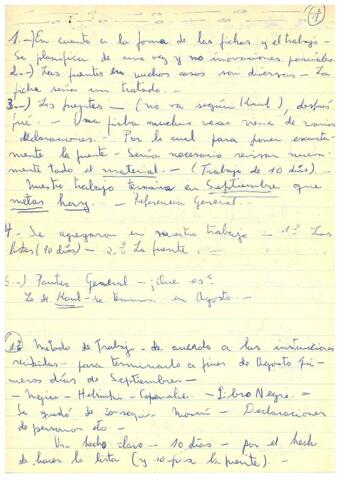 1.-) En cuanto a la forma de las fichas y el trabajo -
Se planifica de una vez y no innovaciones parciales
2.-) Las fuentes en muchos casos son diversas - La
ficha sería un tratado. -
3.-) Las fuentes - (no va según Raul), después
qué. - Una ficha muchas veces viene de varias
declaraciones. - Por lo cual para poner exacta-
mente la fuente - Sería necesario revisar nueva-
mente todo el material. - (Trabajo de 10 días). -
Nuestro trabajo termina en Septiembre que
metas hay. - Referencia General. -
4.- Se agregaron en nuestro trabajo - 1º Las
listas (10 días) - 2º La fuente. -
5.-) Partes General - ¿Que es?
Lo de Raul - se termina en Agosto. -
Metodo de Trabajo - de acuerdo a las instrucciones
recibidas - para terminarlo a fines de Agosto pri-
meros días de Septiembre. -
- Negro - Helsinki - - Libro Negro. -
Se quedó de conseguir - Declaraciones
de personas etc. -
Un hecho claro - 10 días - por el hech
de hacer la lista (y 10 por la fuente). -